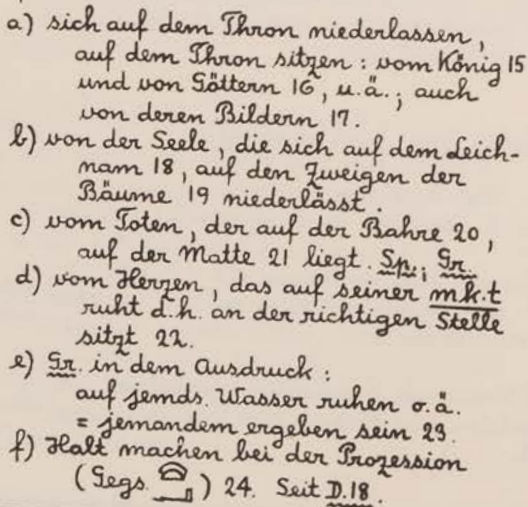 a) sich auf dem Thron niederlassen,
auf dem Thron sitzen: vom König 15
und von Göttern 16, u.ä.; auch
von deren Bildern 17.
b) von der Seele, die sich auf dem Leich-
nam 18, auf den Zweigen der
Bäume 19 niederlässt.
c) vom Toten, der auf der Bahre 20,
auf der Matte 21 liegt. Sp.; Gr.
d) vom Herzen, das auf seiner mk.t
ruht d.h. an der richtigen Stelle
sitzt 22.
e) Gr. in dem Ausdruck:
auf jemds. Wasser ruhen o.ä.
= jemandem ergeben sein 23.
f) Halt machen bei der Prozession
(Gegs. ) 24. Seit D.18.